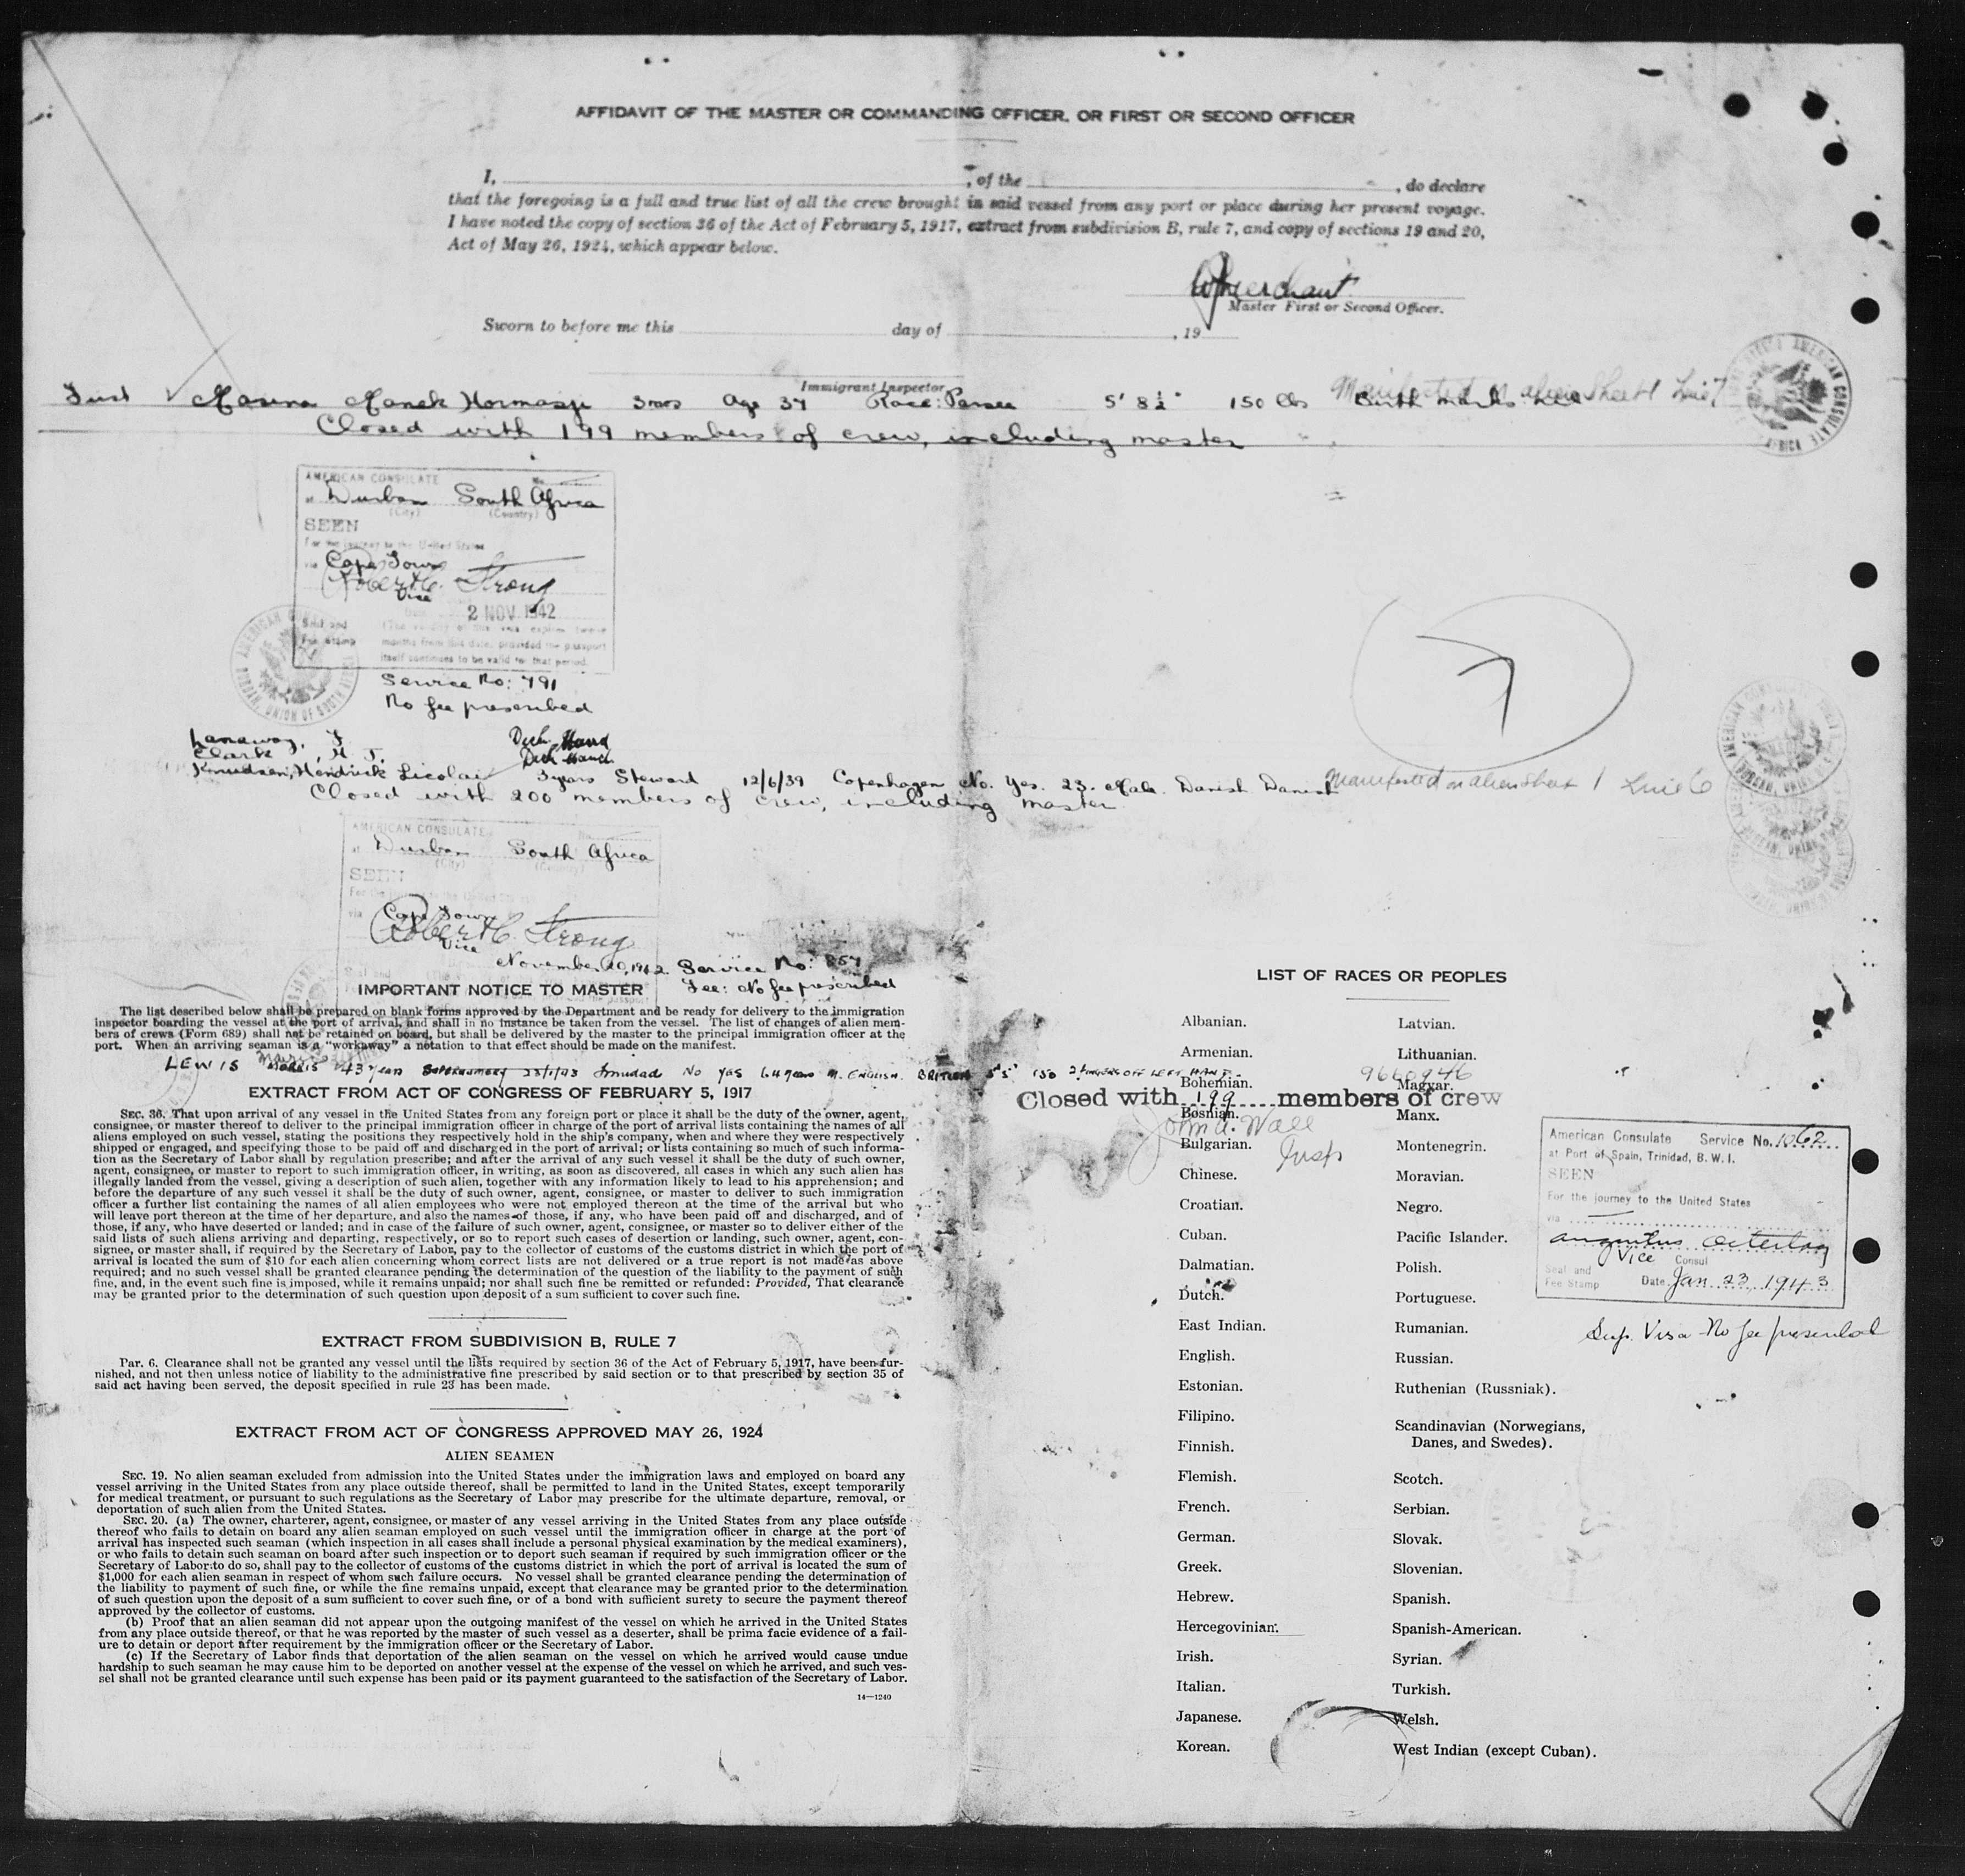 AFFIDAVIT OF THE MASTER OR COMMANDING OFFICER, OR FIRST OR SECOND OFFICER
I, , of the , do declare
that the foregoing is a full and true list of all the crew brought in said vessel from any port or place during her present voyage.
I have noted the copy of section 36 of the Act of February 5, 1917, extract from subdivision B, rule 7, and copy of sections 19 and 20,
Act of May 26, 1924, which appear below.
Master First or Second Officer.
Sworn to before me this day of , 19
Immigrant Inspector
Manek Hormasji 3mos Age 37 Race: Parsee 5' 8½" 150 lbs Birth marks Manifested on alien Sheet 1 Line 7
Closed with 199 members of crew, including master
AMERICAN CONSULATE No.
at Durban South Africa
(City) (Country)
SEEN
For the journey to the United States
via Cape Town
Robert C. Strong
Vice
2 NOV 1942
Seal and Fee Stamp
(The validity of this visa expires twelve
months from this date, provided the passport
itself continues to be valid for that period.
Service No: 791
No fee prescribed
7
Lanaway, F. Deck Hand
Clark, H. J. Deck Hand
Knudsen, Hendrick Licolai 3 years Steward 12/6/39 Copenhagen No. Yes. 23. Male. Danish Danish Manifested on alien Sheet 1 Line 6
Closed with 200 members of crew, including master
AMERICAN CONSULATE No.
at Durban South Africa
(City) (Country)
SEEN
via Cape Town
Robert C. Strong
Vice
November 10, 1942. Service No: 857
Fee: No fee prescribed
IMPORTANT NOTICE TO MASTER
The list described below shall be prepared on blank forms approved by the Department and be ready for delivery to the immigration
inspector boarding the vessel at the port of arrival, and shall in no instance be taken from the vessel. The list of changes of alien mem-
bers of crews (Form 689) shall not be retained on board, but shall be delivered by the master to the principal immigration officer at the
port. When an arriving seaman is a "workaway" a notation to that effect should be made on the manifest.
LEWIS MORRIS 43 years SUPERNUMERY 23/1/43 Trinidad No YES 64 years M. ENGLISH. BRITISH 5'5" 150 2 FINGERS OFF LEFT HAND.
EXTRACT FROM ACT OF CONGRESS OF FEBRUARY 5, 1917
SEC. 36. That upon arrival of any vessel in the United States from any foreign port or place it shall be the duty of the owner, agent,
consignee, or master thereof to deliver to the principal immigration officer in charge of the port of arrival lists containing the names of all
aliens employed on such vessel, stating the positions they respectively hold in the ship's company, when and where they were respectively
shipped or engaged, and specifying those to be paid off and discharged in the port of arrival; or lists containing so much of such informa-
tion as the Secretary of Labor shall by regulation prescribe; and after the arrival of any such vessel it shall be the duty of such owner,
agent, consignee, or master to report to such immigration officer, in writing, as soon as discovered, all cases in which any such alien has
illegally landed from the vessel, giving a description of such alien, together with any information likely to lead to his apprehension; and
before the departure of any such vessel it shall be the duty of such owner, agent, consignee, or master to deliver to such immigration
officer a further list containing the names of all alien employees who were not employed thereon at the time of the arrival but who
will leave port thereon at the time of her departure, and also the names of those, if any, who have been paid off and discharged, and of
those, if any, who have deserted or landed; and in case of the failure of such owner, agent, consignee, or master so to deliver either of the
said lists of such aliens arriving and departing, respectively, or so to report such cases of desertion or landing, such owner, agent, con-
signee, or master shall, if required by the Secretary of Labor, pay to the collector of customs of the customs district in which the port of
arrival is located the sum of $10 for each alien concerning whom correct lists are not delivered or a true report is not made as above
required; and no such vessel shall be granted clearance pending the determination of the question of the liability to the payment of such
fine, and, in the event such fine is imposed, while it remains unpaid; nor shall such fine be remitted or refunded: Provided, That clearance
may be granted prior to the determination of such question upon deposit of a sum sufficient to cover such fine.
EXTRACT FROM SUBDIVISION B, RULE 7
PAR. 6. Clearance shall not be granted any vessel until the lists required by section 36 of the Act of February 5, 1917, have been fur-
nished, and not then unless notice of liability to the administrative fine prescribed by said section or to that prescribed by section 35 of
said act having been served, the deposit specified in rule 23 has been made.
EXTRACT FROM ACT OF CONGRESS APPROVED MAY 26, 1924
ALIEN SEAMEN
SEC. 19. No alien seaman excluded from admission into the United States under the immigration laws and employed on board any
vessel arriving in the United States from any place outside thereof, shall be permitted to land in the United States, except temporarily
for medical treatment, or pursuant to such regulations as the Secretary of Labor may prescribe for the ultimate departure, removal, or
deportation of such alien from the United States.
SEC. 20. (a) The owner, charterer, agent, consignee, or master of any vessel arriving in the United States from any place outside
thereof who fails to detain on board any alien seaman employed on such vessel until the immigration officer in charge at the port of
arrival has inspected such seaman (which inspection in all cases shall include a personal physical examination by the medical examiners),
or who fails to detain such seaman on board after such inspection or to deport such seaman if required by such immigration officer or the
Secretary of Labor to do so, shall pay to the collector of customs of the customs district in which the port of arrival is located the sum of
$1,000 for each alien seaman in respect of whom such failure occurs. No vessel shall be granted clearance pending the determination of
the liability to payment of such fine, or while the fine remains unpaid, except that clearance may be granted prior to the determination
of such question upon the deposit of a sum sufficient to cover such fine, or of a bond with sufficient surety to secure the payment thereof
approved by the collector of customs.
(b) Proof that an alien seaman did not appear upon the outgoing manifest of the vessel on which he arrived in the United States
from any place outside thereof, or that he was reported by the master of such vessel as a deserter, shall be prima facie evidence of a fail-
ure to detain or deport after requirement by the immigration officer or the Secretary of Labor.
(c) If the Secretary of Labor finds that deportation of the alien seaman on the vessel on which he arrived would cause undue
hardship to such seaman he may cause him to be deported on another vessel at the expense of the vessel on which he arrived, and such ves-
sel shall not be granted clearance until such expense has been paid or its payment guaranteed to the satisfaction of the Secretary of Labor.
14—1240
LIST OF RACES OR PEOPLES
Albanian.
Armenian.
Bohemian.
Bosnian.
Bulgarian.
Chinese.
Croatian.
Cuban.
Dalmatian.
Dutch.
East Indian.
English.
Estonian.
Filipino.
Finnish.
Flemish.
French.
German.
Greek.
Hebrew.
Hercegovinian.
Irish.
Italian.
Japanese.
Korean.
Latvian.
Lithuanian.
Magyar.
Manx.
Montenegrin.
Moravian.
Negro.
Pacific Islander.
Polish.
Portuguese.
Rumanian.
Russian.
Ruthenian (Russniak).
Scandinavian (Norwegians,
Danes, and Swedes).
Scotch.
Serbian.
Slovak.
Slovenian.
Spanish.
Spanish-American.
Syrian.
Turkish.
Welsh.
West Indian (except Cuban).
9660946
Closed with 199 members of crew
John A. Wall
Insp
American Consulate Service No. 1062
at Port of Spain, Trinidad, B. W. I.
SEEN
For the journey to the United States
via
Vice Consul
Seal and
Fee Stamp Date Jan 23, 1943
Sup. Visa No fee prescribed